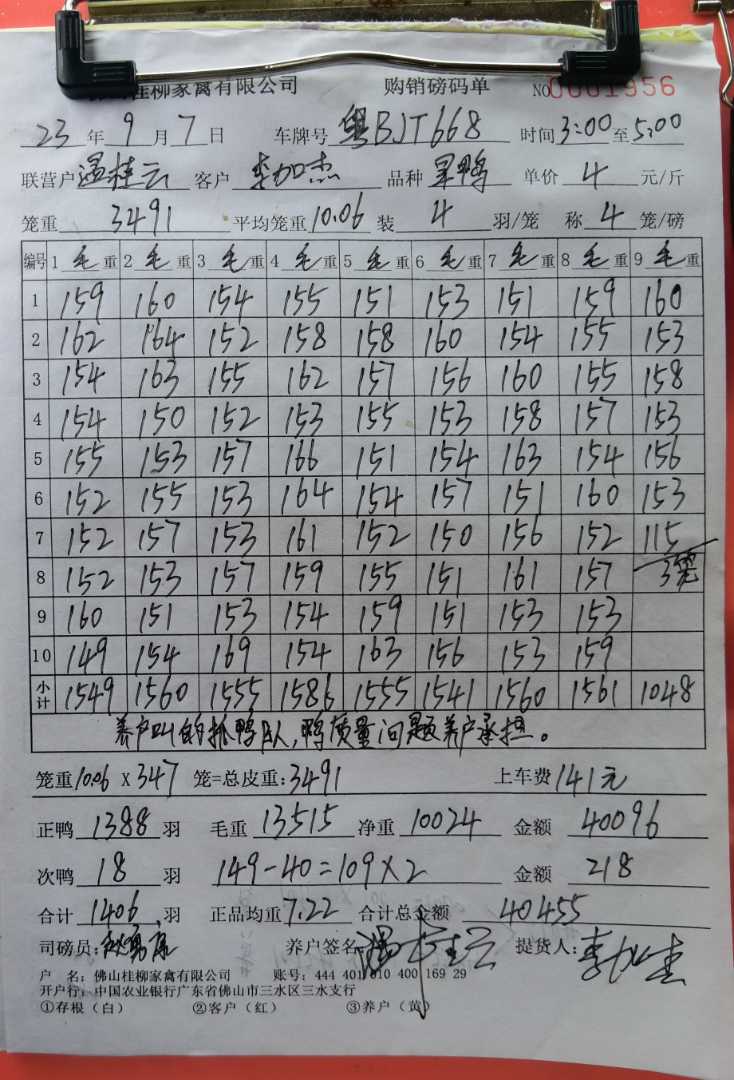 佛山桂柳家禽有限公司 购销磅码单 NO 0001956
23年9月7日 车牌号 粤BJT668 时间3:00至5:00
联营户温桂云 客户 李加杰 品种 单价 4 元/斤
笼重 3491 平均笼重10.06 装 4 羽/笼 称 4 笼/磅
编号 1 毛 重 2 毛 重 3 毛 重 4 毛 重 5 毛 重 6 毛 重 7 毛 重 8 毛 重 9 毛 重
1 159 160 154 155 151 153 151 159 160
2 162 164 152 158 158 160 154 155 153
3 154 163 155 162 157 156 160 155 158
4 154 150 152 153 155 153 158 157 153
5 155 153 157 166 151 154 163 154 156
6 152 155 153 164 154 157 151 160 153
7 152 157 153 161 152 150 156 152 115
8 152 153 157 159 155 151 161 157 3笼
9 160 151 153 154 159 151 153 153
10 149 154 169 154 163 156 153 159
小计 1549 1560 1555 1586 1555 1541 1560 1561 1048
养户叫的抓鸭队,鸭质量问题养户承担。
笼重10.06 X 347 笼=总皮重:3491 上车费 141元
正鸭 1388 羽 毛重 13515 净重 10024 金额 40096
次鸭 18 羽 149-40=109X2 金额 218
合计 1406 羽 正品均重7.22 合计总金额 40455
司磅员: 养户签名:温桂云 提货人:李加杰
户 名:佛山桂柳家禽有限公司 账号:444 401 010 400 169 29
开户行:中国农业银行广东省佛山市三水区三水支行
①存根(白) ②客户(红) ③养户(黄)